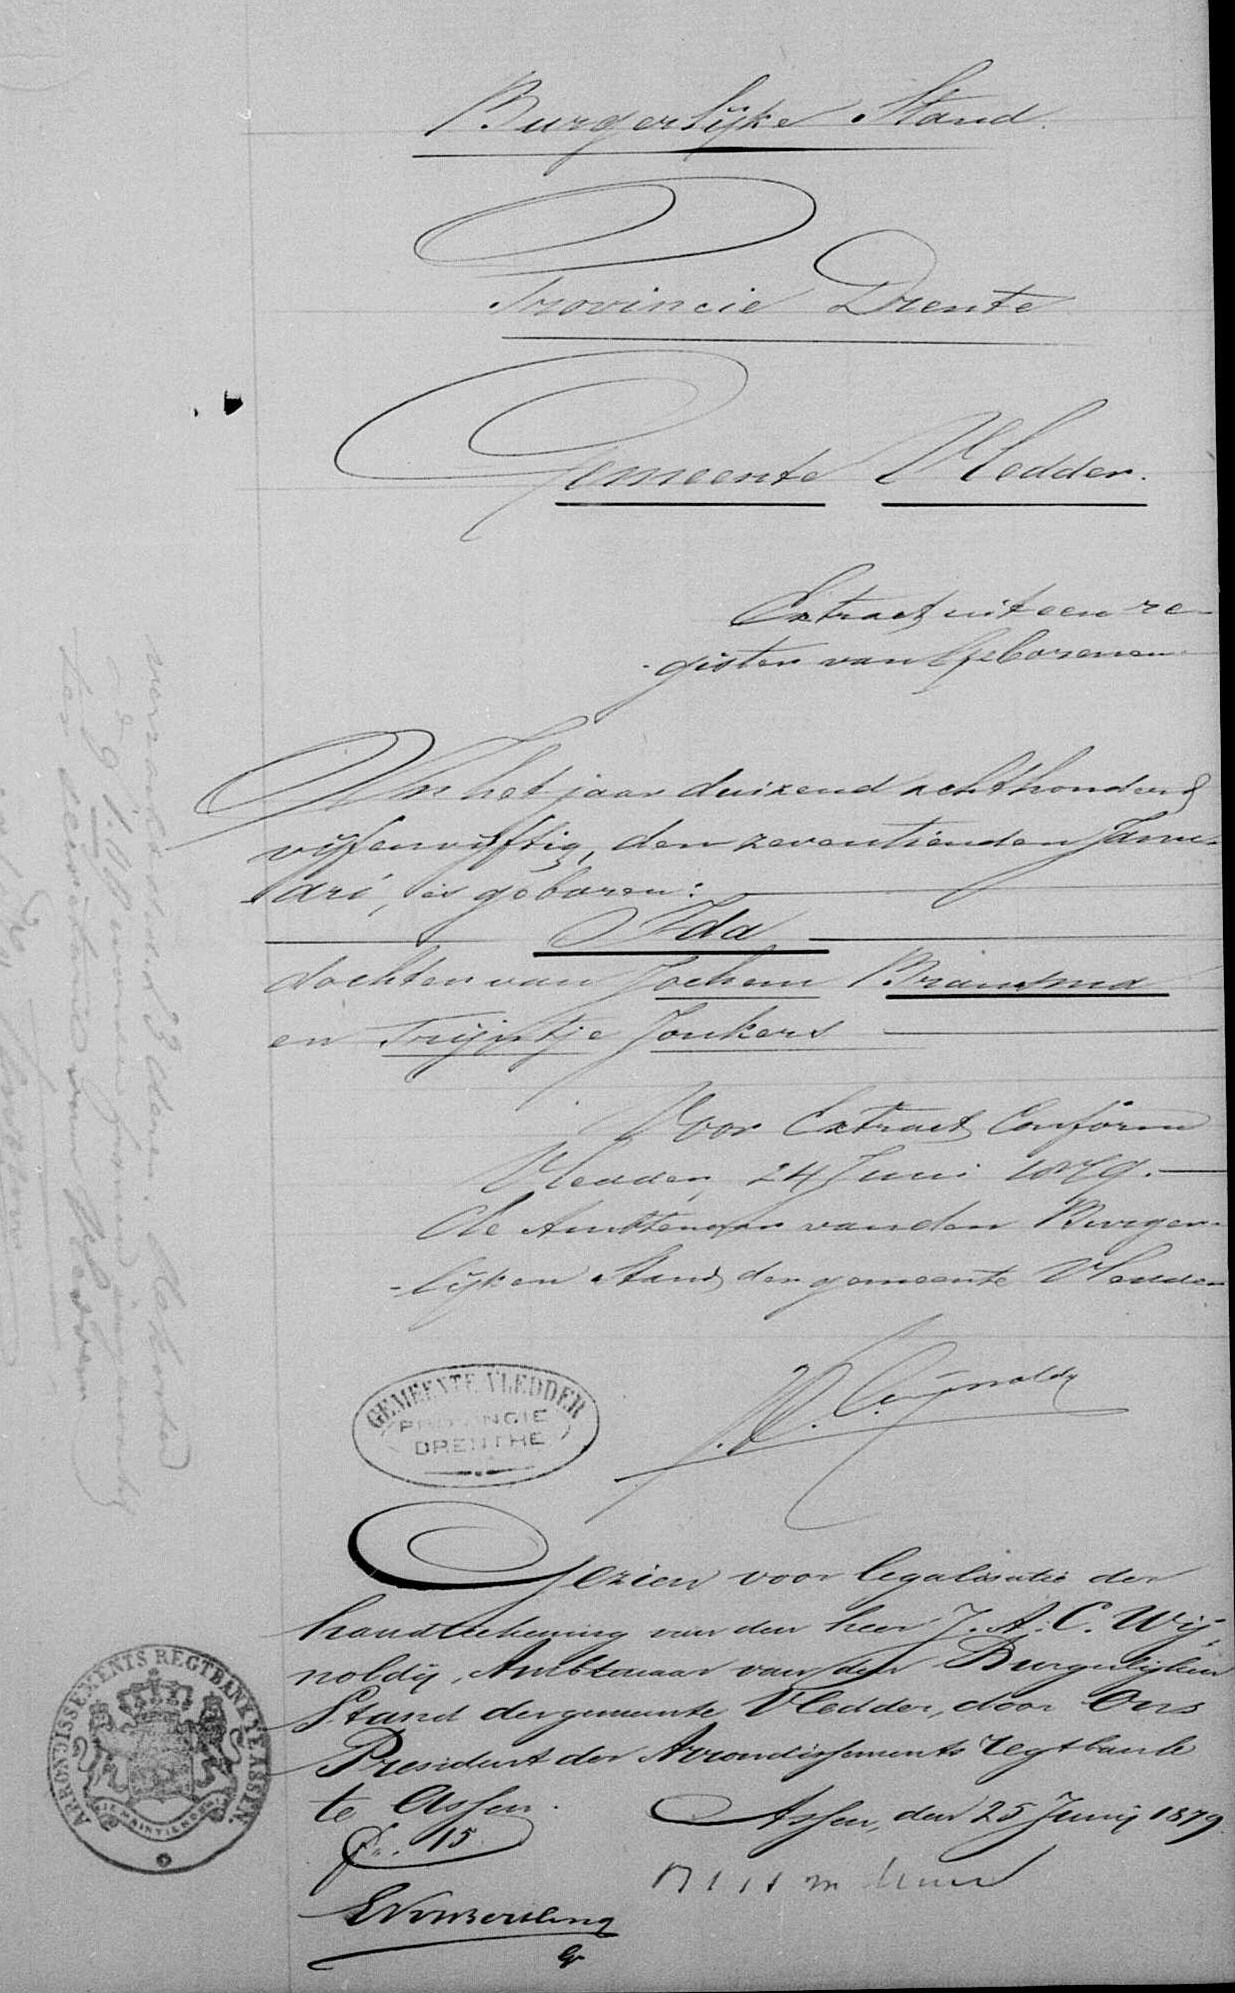 Burgerlijke Stand.
Provincie Drente
Gemeente Vledder.
Extract uit een re-
gister van Geborenen
In het jaar duizend achthonderd
vijfenvijftig, den zeventienden Janu-
ari, is geboren:
Ida
dochter van Jochem Brandsma
en Trijntje Jonkers
Voor Extract Conform
Vledder, 24 Juni 1879.
De Ambtenaar van den Burger-
lijken Stand der gemeente Vledder
GEMEENTE VLEDDER
PROVINCIE
DRENTHE
Gezien voor legalisatie der
handteekening van den heer J. A. C. Wij-
noldij, Ambtenaar van den Burgerlijken
Stand der gemeente Vledder, door Ons
President der Arrondissements regtbank
te Assen.
Assen, den 25 Junij 1879.
15
ARRONDISSEMENTS REGTBANK TE ASSEN.
JE MAINTIENDRAI